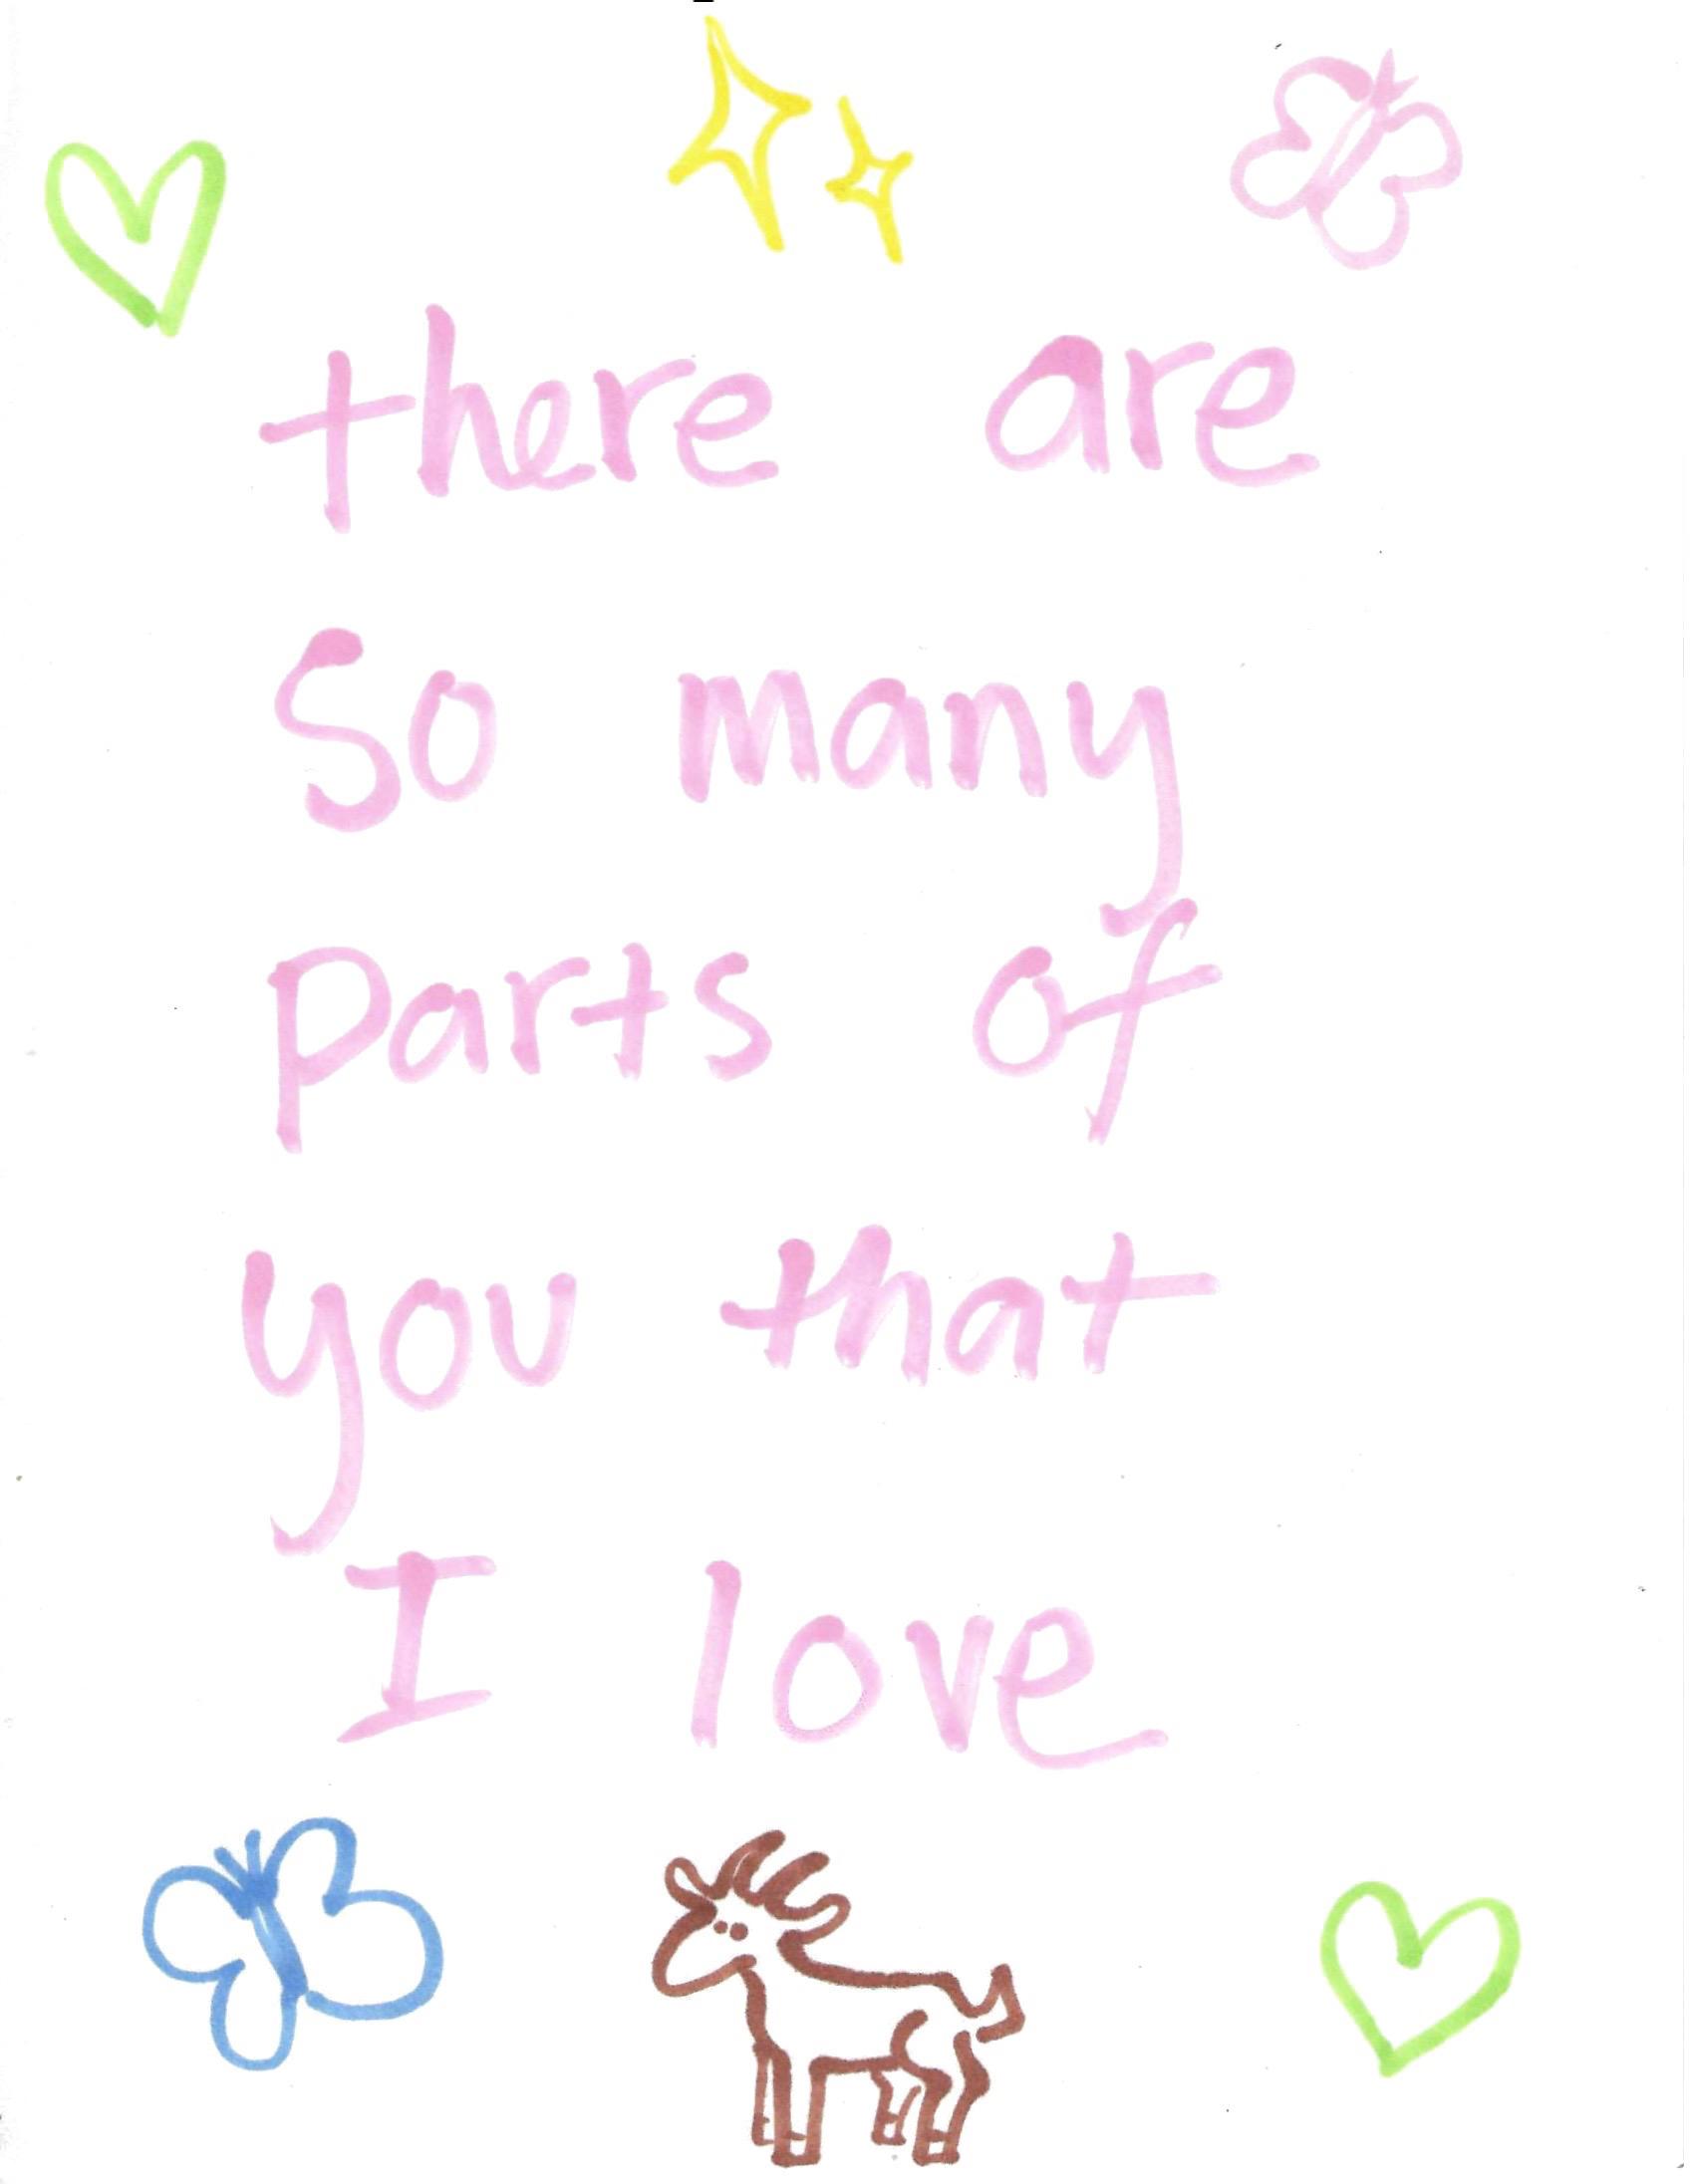 there are
so many
parts of
you that
I love